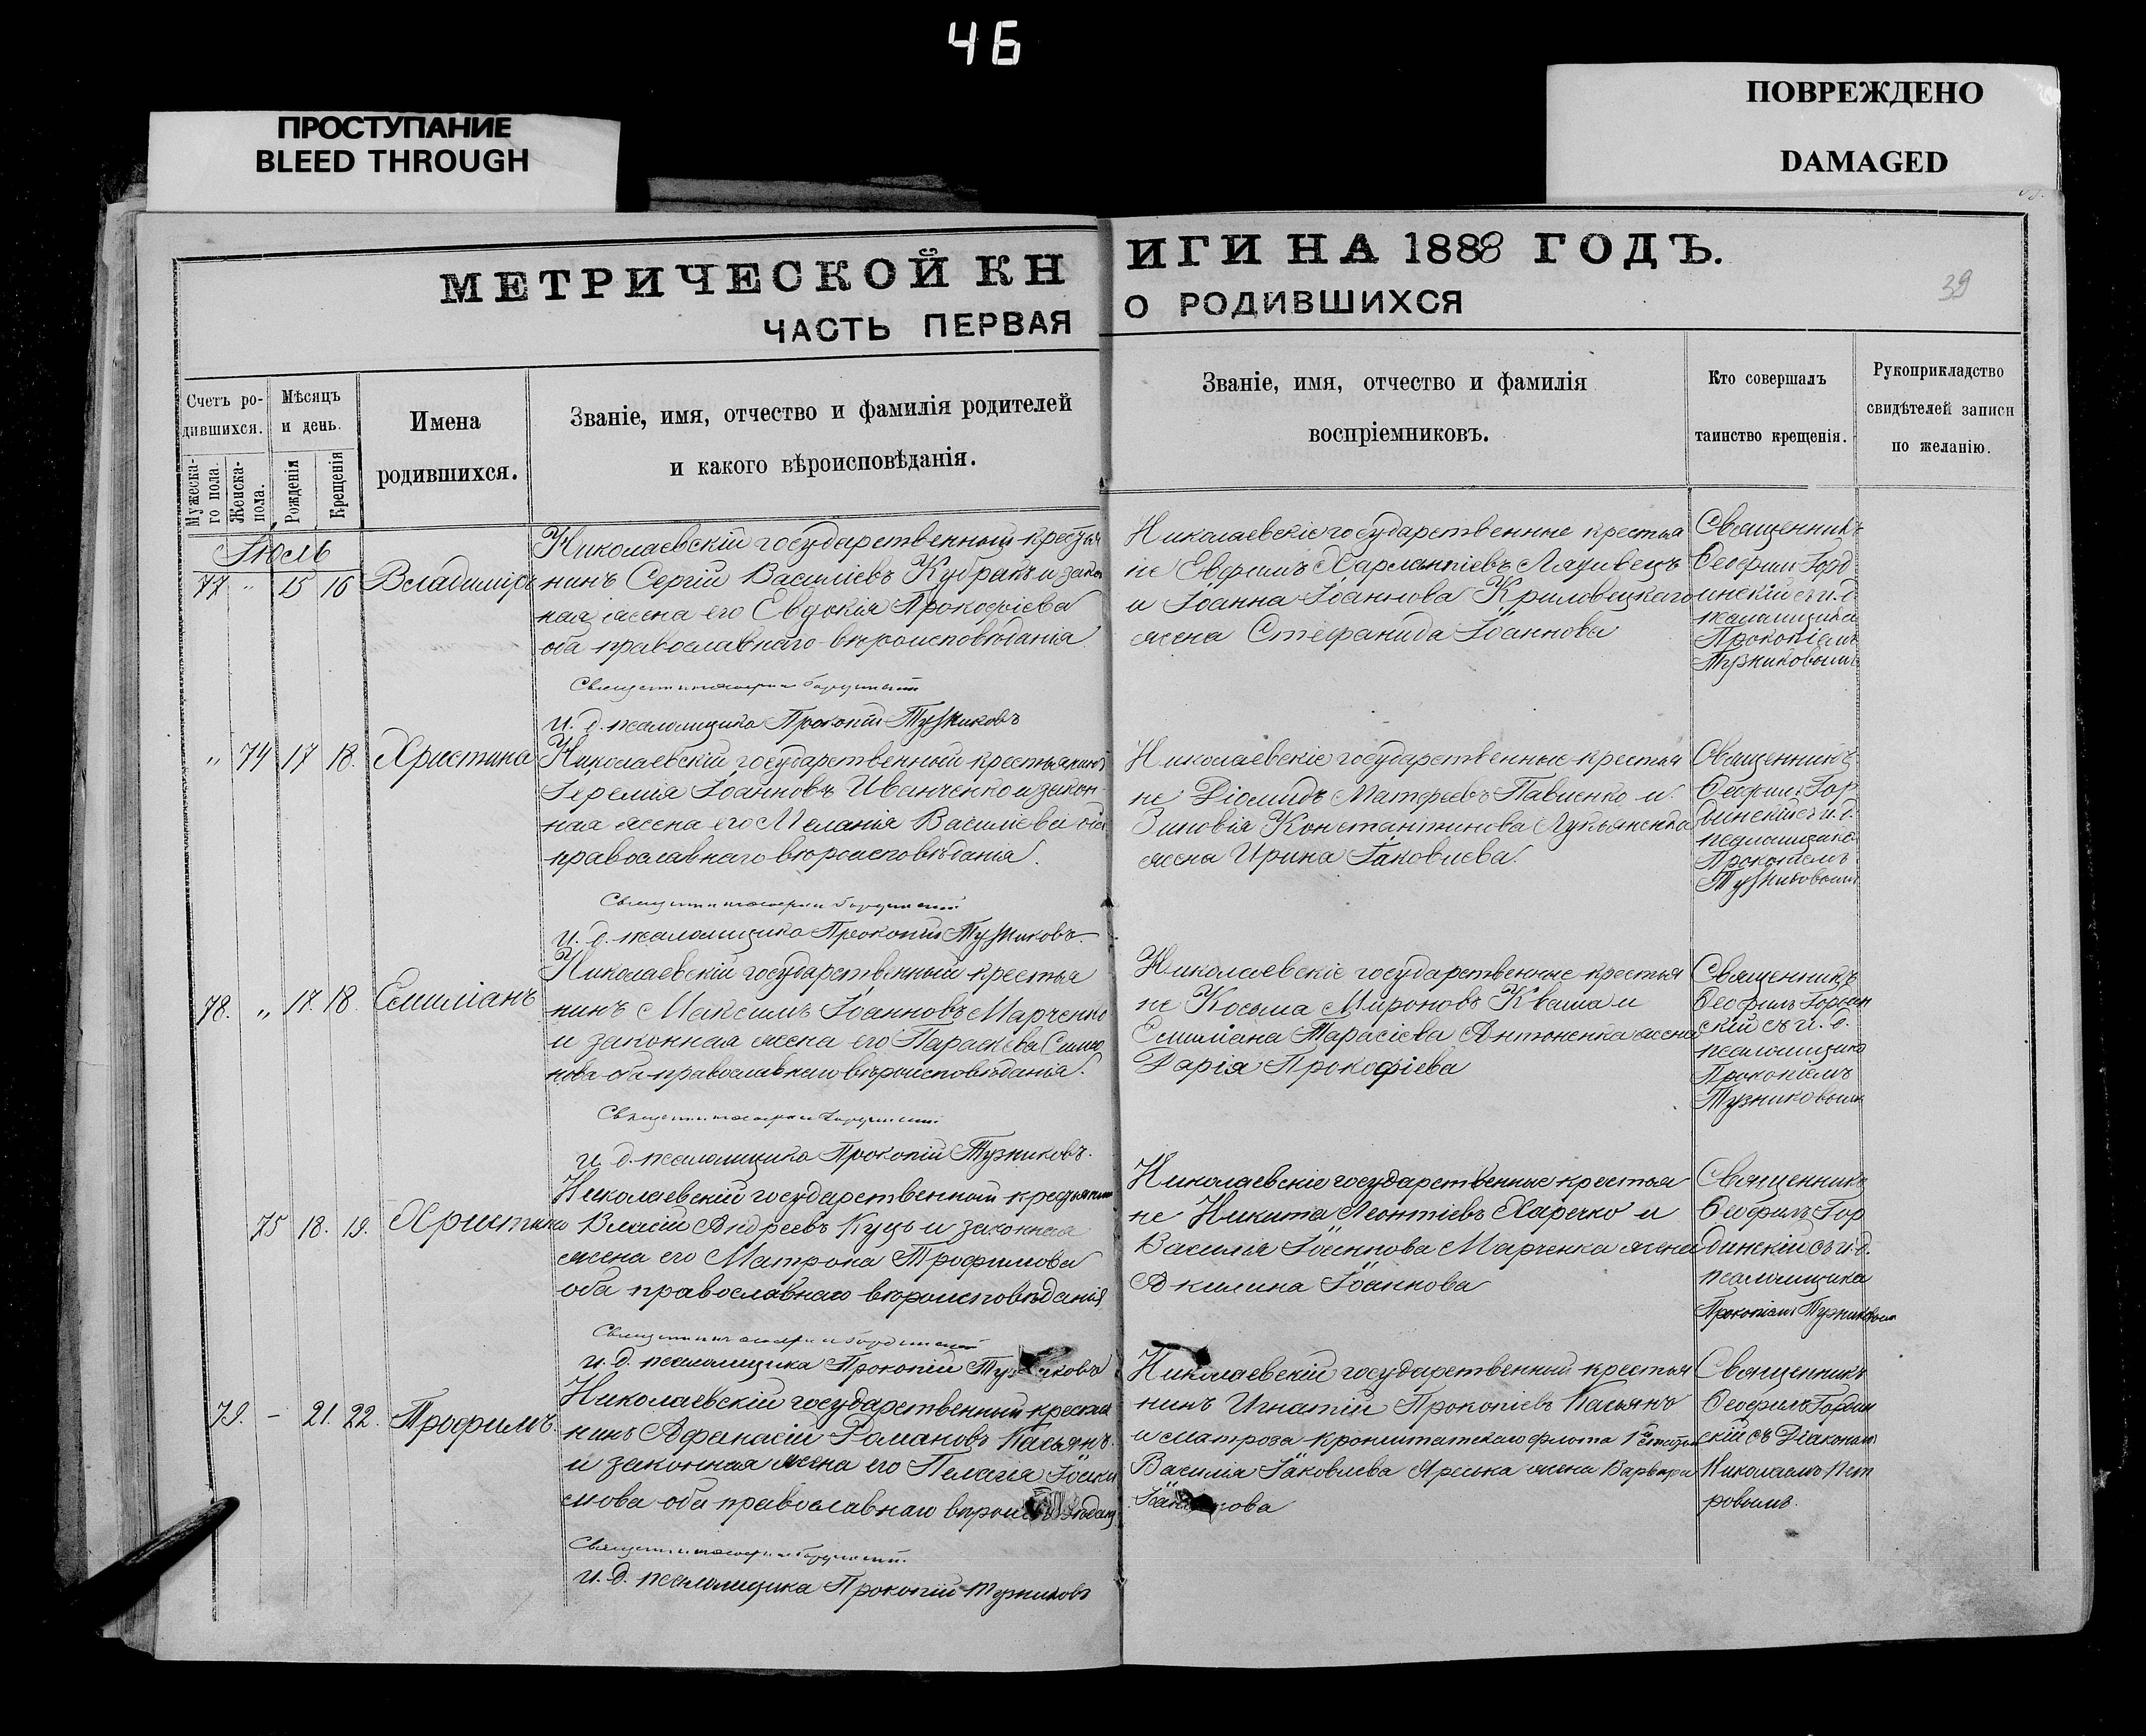 46
ПРОСТУПАНИЕ
BLEED THROUGH
ПОВРЕЖДЕНО
DAMAGED
МЕТРИЧЕСКОЙ КНИГИ НА 1888 ГОДЪ.
ЧАСТЬ ПЕРВАЯ О РОДИВШИХСЯ
39
Счетъ ро-
дившихся.
Мужеска-
го пола.
Женска-
пола.
Мѣсяцъ
и день.
Рожденія
Крещенія
Имена
родившихся.
Званіе, имя, отчество и фамилія родителей
и какого вѣроисповѣданія.
Званіе, имя, отчество и фамилія
воспріемниковъ.
Кто совершалъ
таинство крещенія.
Рукоприкладство
свидѣтелей записи
по желанію.
Іюль
77 " 15 16 Владиміръ
Николаевскій государственный крестья
нинъ Сергій Василіевъ Кубракъ и закон
ная жена его Евдокія Прокофіева
оба православнаго вѣроисповѣданія
И. д. псаломщика Прокопій Тузниковъ
Николаевскіе государственные крестья
не Евфимъ Харлампіевъ Лазивецъ
и Іоанна Іоаннова Криловецкаго
жена Стефанида Іоаннова
Священникъ
Ѳеофилъ Горд
инскій съ и. д.
псаломщика
Прокопіемъ
Тузниковымъ
" 74 17 18. Христина
Николаевскій государственный крестьянинъ
Іеремія Іоанновъ Иванченко и закон
ная жена его Меланія Василіева оба
православнаго вѣроисповѣданія.
И. д. псаломщика Прокопій Тузниковъ.
Николаевскіе государственные крестья
не Діомидъ Матфеевъ Павленко и
Зиновія Константинова Лукьяненка
жена Ирина Іаковлева.
Священникъ
Ѳеофилъ Гор
динскій съ и. д.
псаломщика
Прокопіемъ
Тузниковымъ
78. " 17. 18. Емиліанъ
Николаевскій государственный крестья
нинъ Максимъ Іоанновъ Марченко
и законная жена его Параскева Симо
нова оба православнаго вѣроисповѣданія.
и. д. псаломщика Прокопій Тузниковъ.
Николаевскіе государственные крестья
не Косьма Мироновъ Кваша и
Емиліана Тарасіева Антоненка жена
Дарія Прокофіева
Священникъ
Ѳеофилъ Гордин
скій съ и. д.
псаломщика
Прокопіемъ
Тузниковымъ
75 18. 19. Христина
Николаевскій государственный крестьянинъ
Власій Андреевъ Куць и законная
жена его Матрона Трофимова
оба православнаго вѣроисповѣданія
и. д. псаломщика Прокопій Тузниковъ
Николаевскіе государственные крестья
не Никита Леонтіевъ Харечко и
Василія Іоаннова Марченка жена
Акилина Іоаннова
Священникъ
Ѳеофилъ Гор
динскій съ и. д.
псаломщика
Прокопіемъ Тузниковымъ
79. - 21. 22. Трофимъ.
Николаевскій государственный крестья
нинъ Афанасій Романовъ Касьянъ
и законная жена его Пелагія Іоаки
мова оба православнаго вѣроисповѣдан
и. д. псаломщика Прокопій Тузниковъ
Николаевскій государственный крестья
нинъ Игнатій Прокопіевъ Касьянъ
и матроза Кронштатскаго флота 1й
Василія Іаковлева Яреська жена Варвара
Священникъ
Ѳеофилъ Гордин
скій съ Діакономъ
Николаемъ Пет
ровымъ.